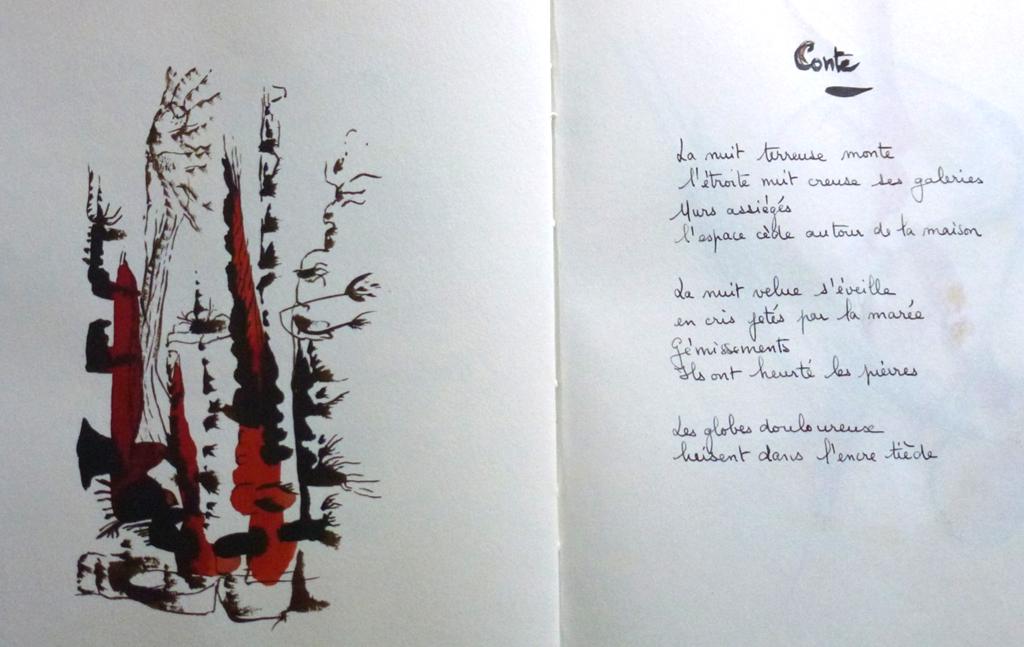 Conte
La nuit terreuse monte
l'étroite nuit creuse ses galeries
Murs assiégés
l'espace cède autour de la maison
La nuit velue s'éveille
en cris jetés par la marée
Gémissements
Ils ont heurté les pierres
Les globes douloureux
luisent dans l'encre tiède